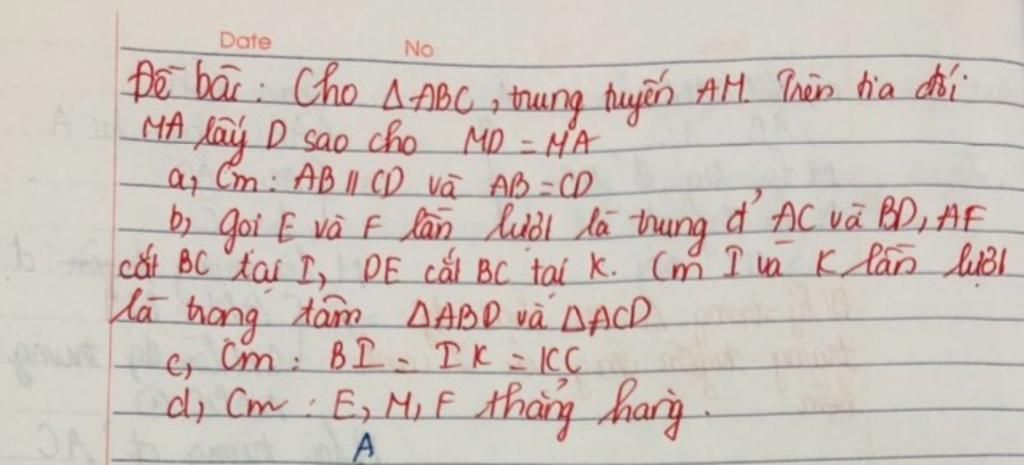 Date No
Đề bài: Cho ΔABC, trung tuyến AM. Trên tia đối
MA lấy D sao cho MD = MA
a, Cm: AB ∥ CD và AB = CD
b, gọi E và F lần lượt là trung đ' AC và BD, AF
cắt BC tại I, DE cắt BC tại K. Cm I và K lần lượt
là trọng tâm ΔABD và ΔACD
c, Cm: BI = IK = KC
d, Cm: E, M, F thẳng hàng.
A